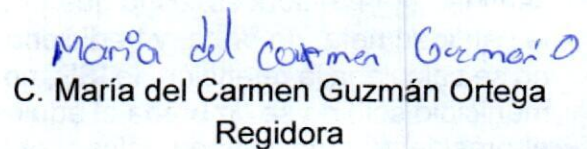 Maria del carmen Guzmán O
C. María del Carmen Guzmán Ortega
Regidora